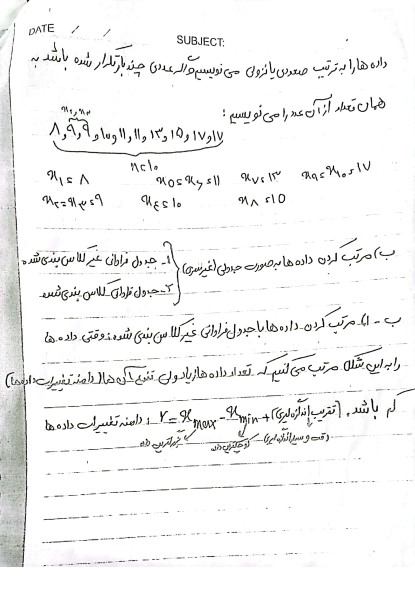 DATE
SUBJECT:
داده ها را به ترتیب صعودی یا نزولی می نویسیم و اگر عددی چند بار تکرار شده باشد به
همان تعداد از آن عدد را می نویسیم :
x₂ , x₃
۸ , ۹ , ۹ , ۱۰ , ۱۱ , ۱۱ , ۱۳ , ۱۵ , ۱۷ , ۱۷
n = ۱۰
x₁ = ۸ x₅ = x₆ = ۱۱ x₇ = ۱۳ x₉ = x₁₀ = ۱۷
x₂ = x₃ = ۹ x₄ = ۱۰ x₈ = ۱۵
ب) مرتب کردن داده ها به صورت جدولی (غیر سری)
۱- جدول فراوانی غیر کلاس بندی شده
۲- جدول فراوانی کلاس بندی شده
ب - ۱) مرتب کردن داده ها با جدول فراوانی غیر کلاس بندی شده : وقتی داده ها
را به این شکل مرتب می کنیم که تعداد داده ها زیاد ولی تنوع آن ها (دامنه تغییرات داده ها)
کم باشد. (تقریب اندازه گیری) + r = x max - x min : دامنه تغییرات داده ها
دقت وسیله اندازه گیری کوچکترین داده بزرگترین داده